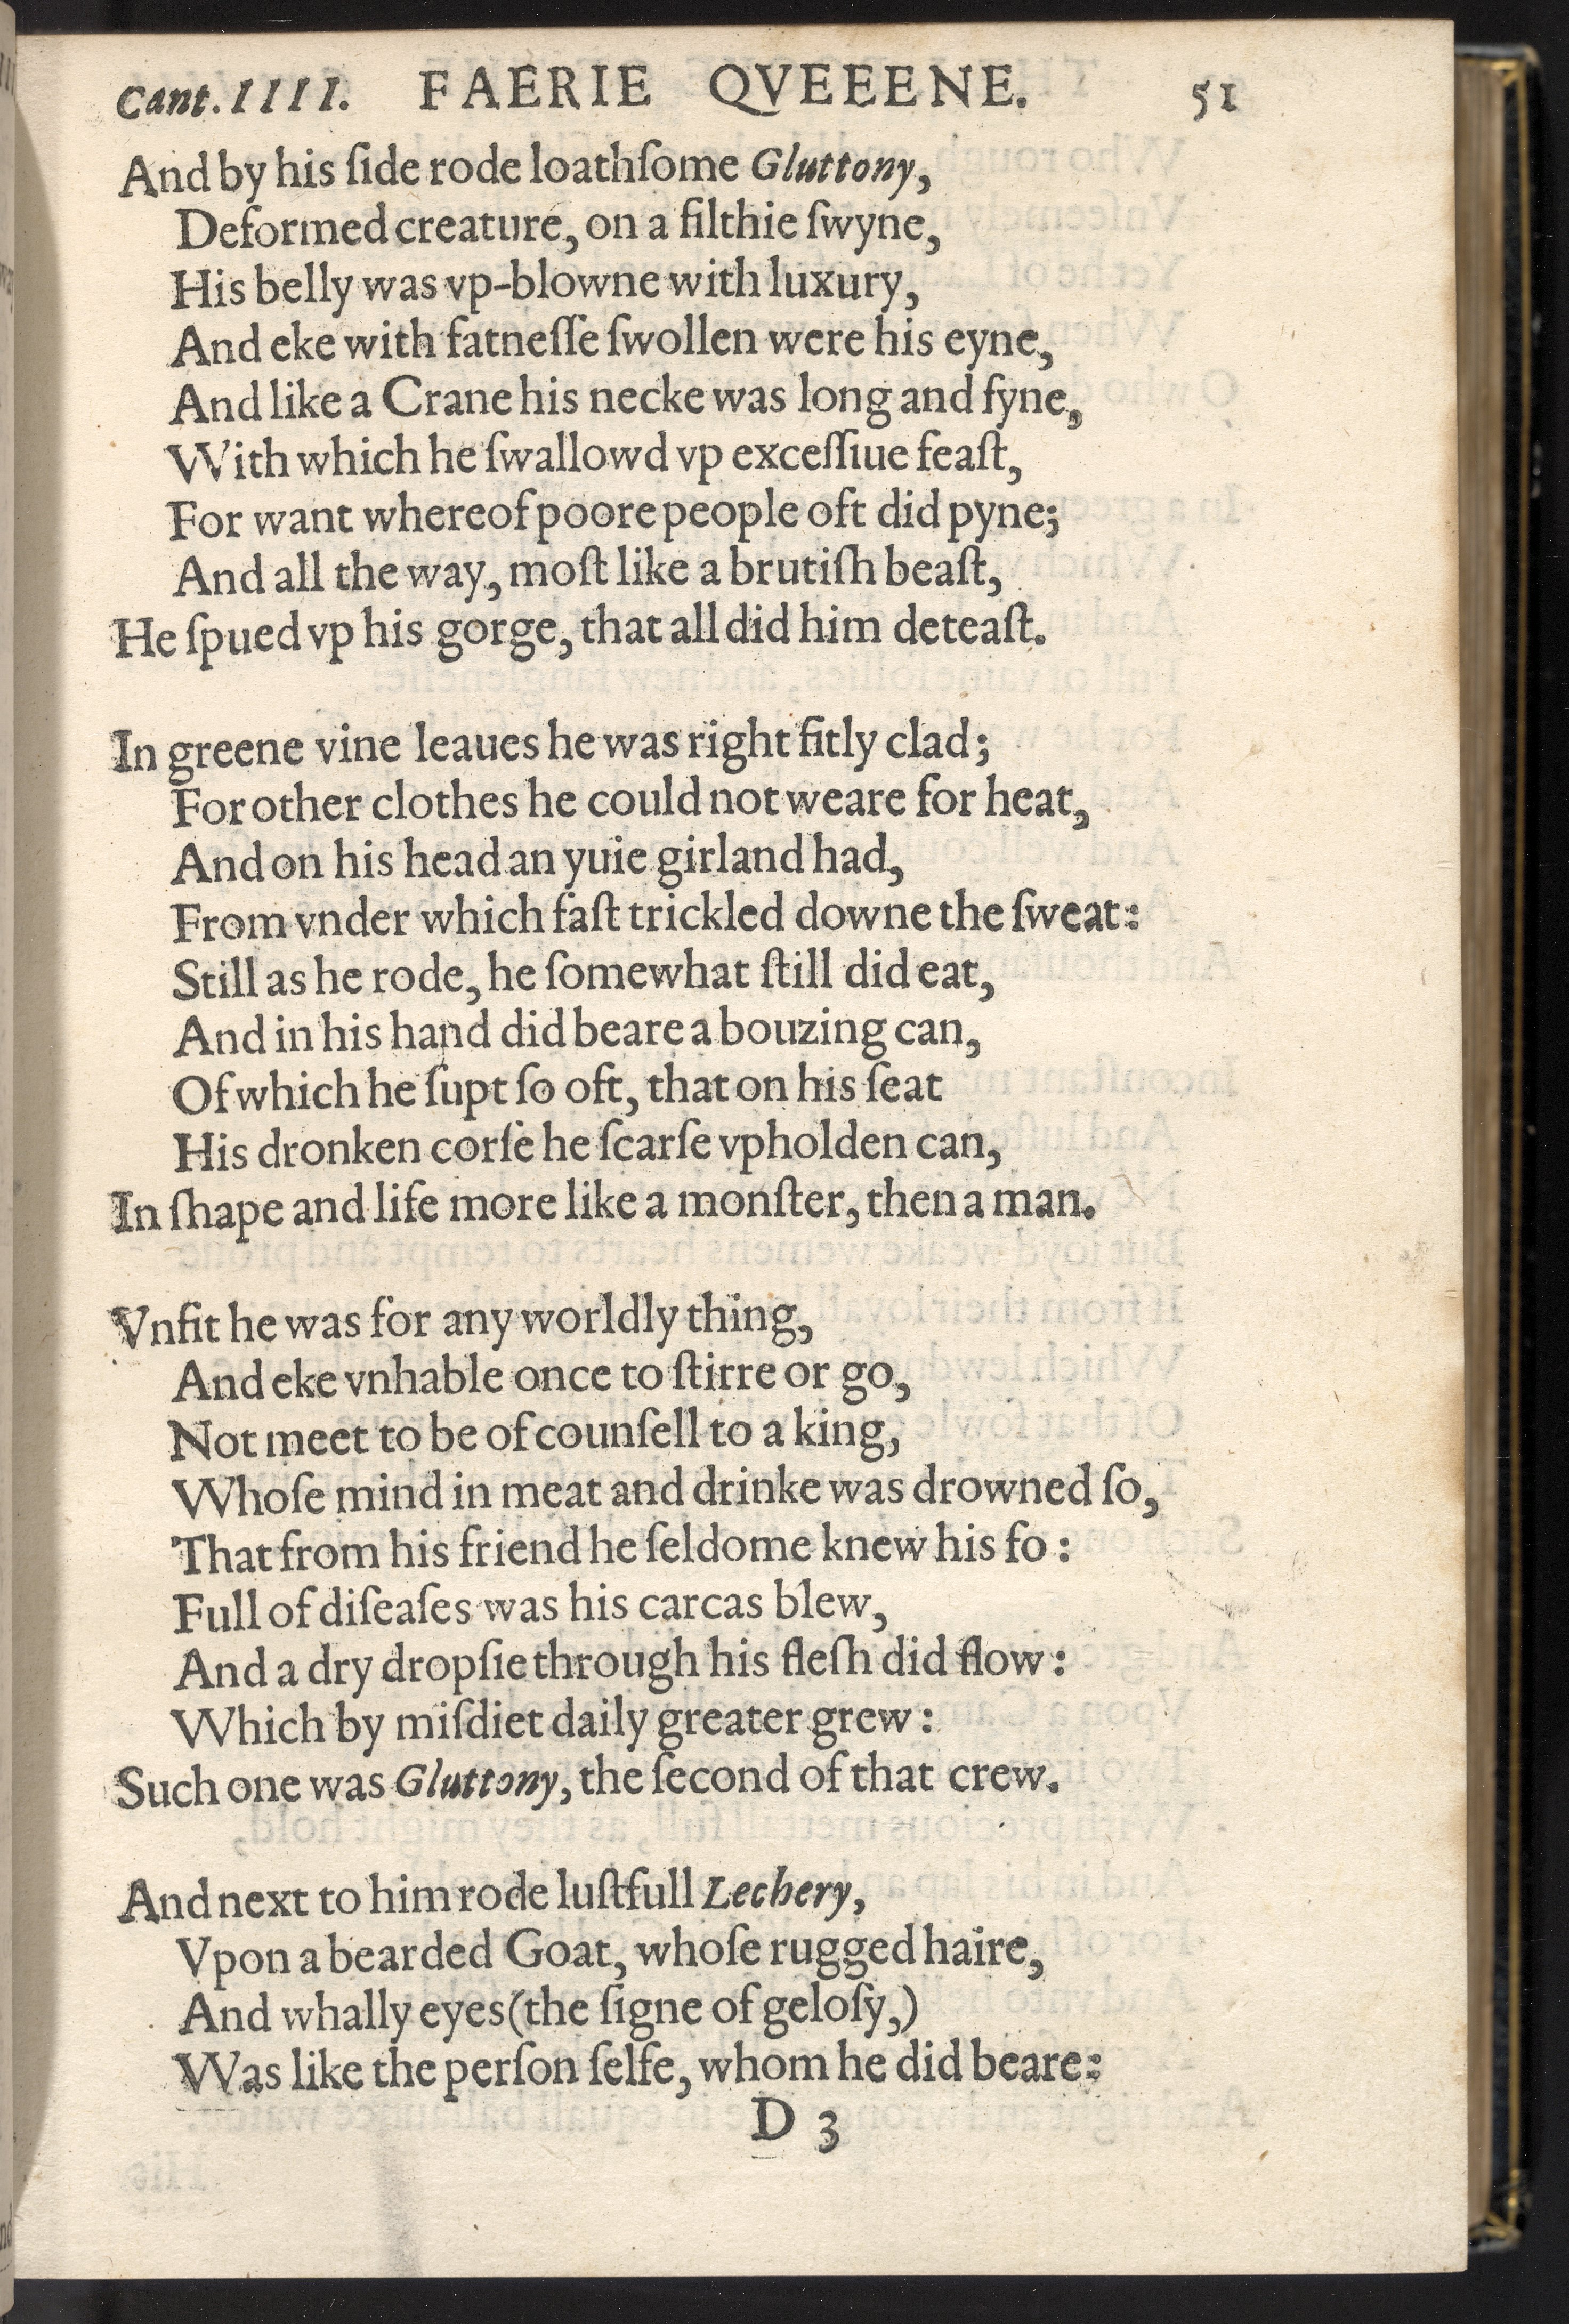 Cant. IIII. FAERIE QVEEENE. 51
And by his ſide rode loathſome Gluttony,
Deformed creature, on a filthie ſwyne,
His belly was vp-blowne with luxury,
And eke with fatneſſe ſwollen were his eyne,
And like a Crane his necke was long and fyne,
With which he ſwallowd vp exceſſiue feaſt,
For want whereof poore people oft did pyne;
And all the way, moſt like a brutiſh beaſt,
He ſpued vp his gorge, that all did him deteaſt.
In greene vine leaues he was right fitly clad;
For other clothes he could not weare for heat,
And on his head an yuie girland had,
From vnder which faſt trickled downe the ſweat:
Still as he rode, he ſomewhat ſtill did eat,
And in his hand did beare a bouzing can,
Of which he ſupt ſo oft, that on his ſeat
His dronken corſe he ſcarſe vpholden can,
In ſhape and life more like a monſter, then a man.
Vnfit he was for any worldly thing,
And eke vnhable once to ſtirre or go,
Not meet to be of counſell to a king,
Whoſe mind in meat and drinke was drowned ſo,
That from his friend he ſeldome knew his fo:
Full of diſeaſes was his carcas blew,
And a dry dropſie through his fleſh did flow:
Which by miſdiet daily greater grew:
Such one was Gluttony, the ſecond of that crew.
And next to him rode luſtfull Lechery,
Vpon a bearded Goat, whoſe rugged haire,
And whally eyes (the ſigne of geloſy,)
Was like the perſon ſelfe, whom he did beare:
D 3